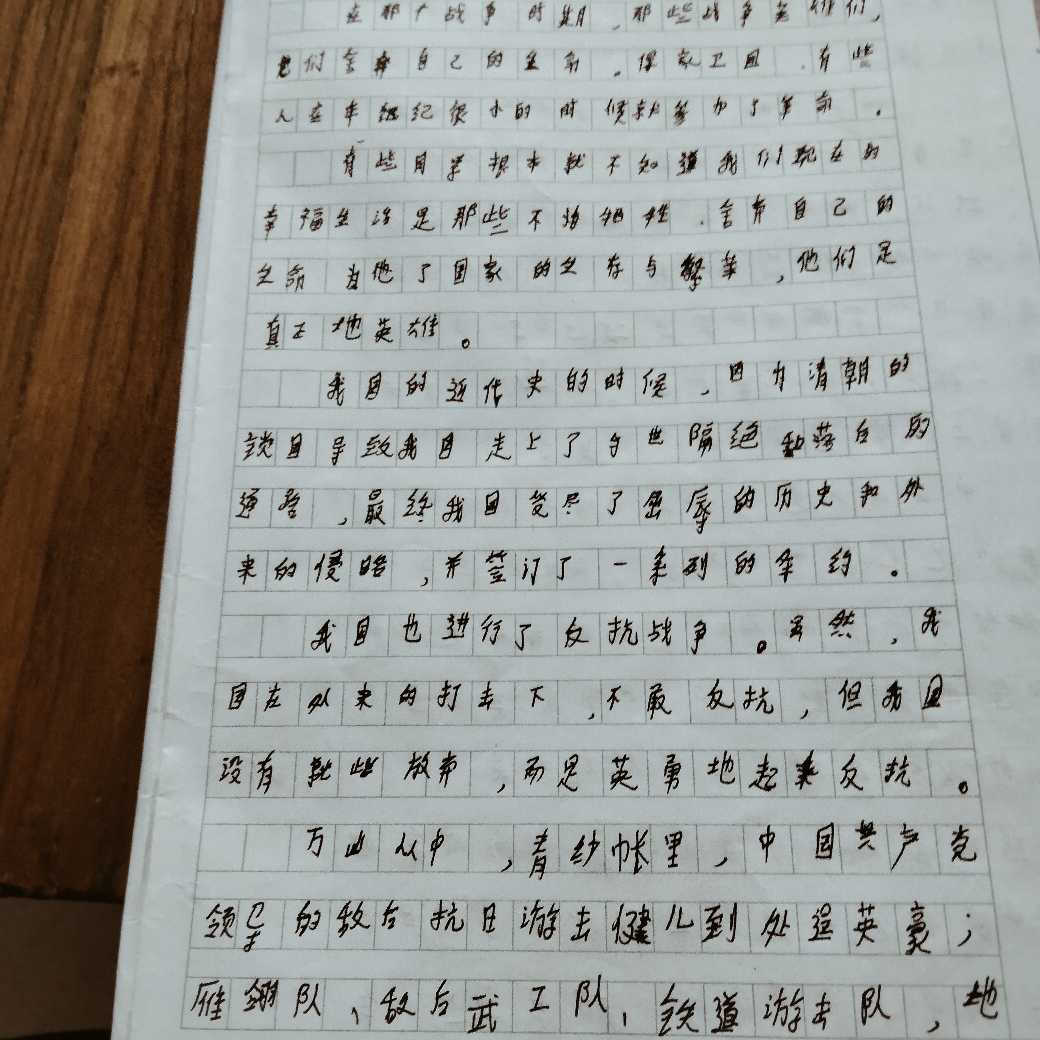 在那个战争时期，那些战争英雄们，
他们舍弃自己的生命。保家卫国，有些
人在年纪很小的时候就参加了革命。
有些同学根本就不知道我们现在的
幸福生活是那些不怕牺牲，舍弃自己的
生命 为他了国家的生存与繁荣，他们是
真正地英雄。
我国的近代史的时候，因为清朝的
锁国导致我国走上了与世隔绝和落后的
道路，最终我国受尽了屈辱的历史和外
来的侵略，并签订了一系列的条约。
我国也进行了反抗战争。虽然，我
国在外来的打击下，不敢反抗，但我国
没有就些放弃，而是英勇地起来反抗。
万山丛中，青纱帐里，中国共产党
领导的敌后抗日游击健儿到处逞英豪；
雁翎队、敌后武工队、铁道游击队，地